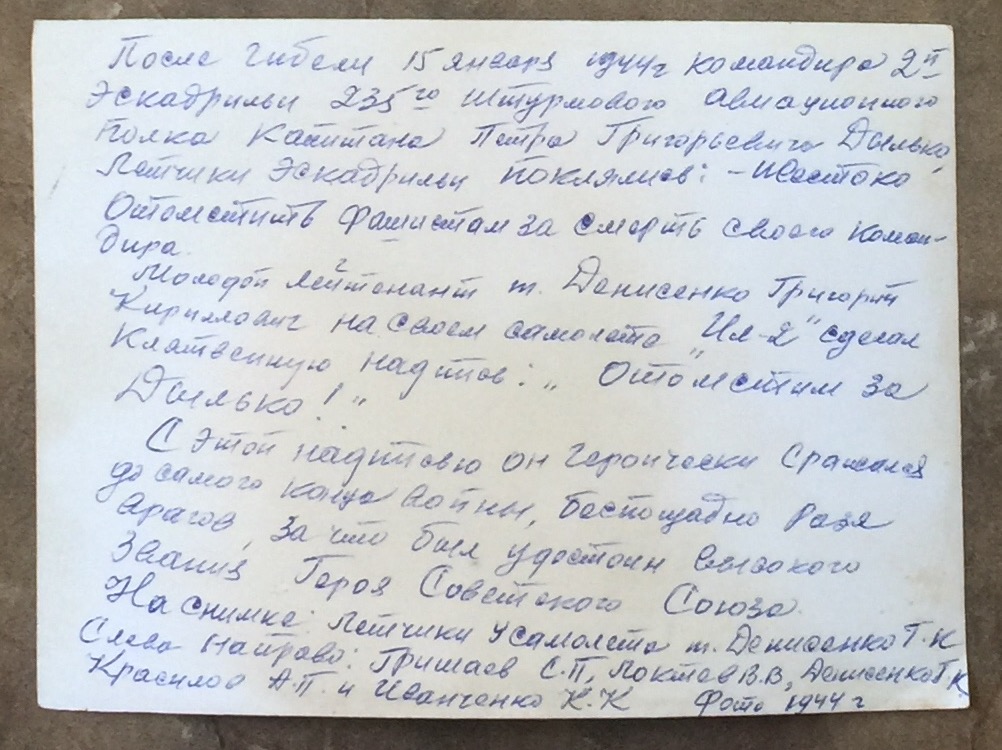 После гибели 15 января 1944г командира 2й
Эскадрильи 235го штурмового авиационного
полка Капитана Петра Григорьевича Дылько,
Летчики Эскадрильи поклялись: - Жестоко
Отомстить фашистам за смерть своего коман-
дира.
Молодой лейтенант т. Денисенко Григорий
Кириллович на своем самолете „Ил-2" сделал
Клятвенную надпись: „ Отомстим за
Дылько! "
С этой надписью он героически Сражался
до самого конца войны, беспощадно разя
врагов, за что был удостоен высокого
Звания Героя Советского Союза.
На снимке: Летчики у самолета т. Денисенко Г. К
Слева направо: Гришаев С.П, Локтев В.В, Денисенко Г.К,
Красилов А.П. и Иванченко К.К Фото 1944 г